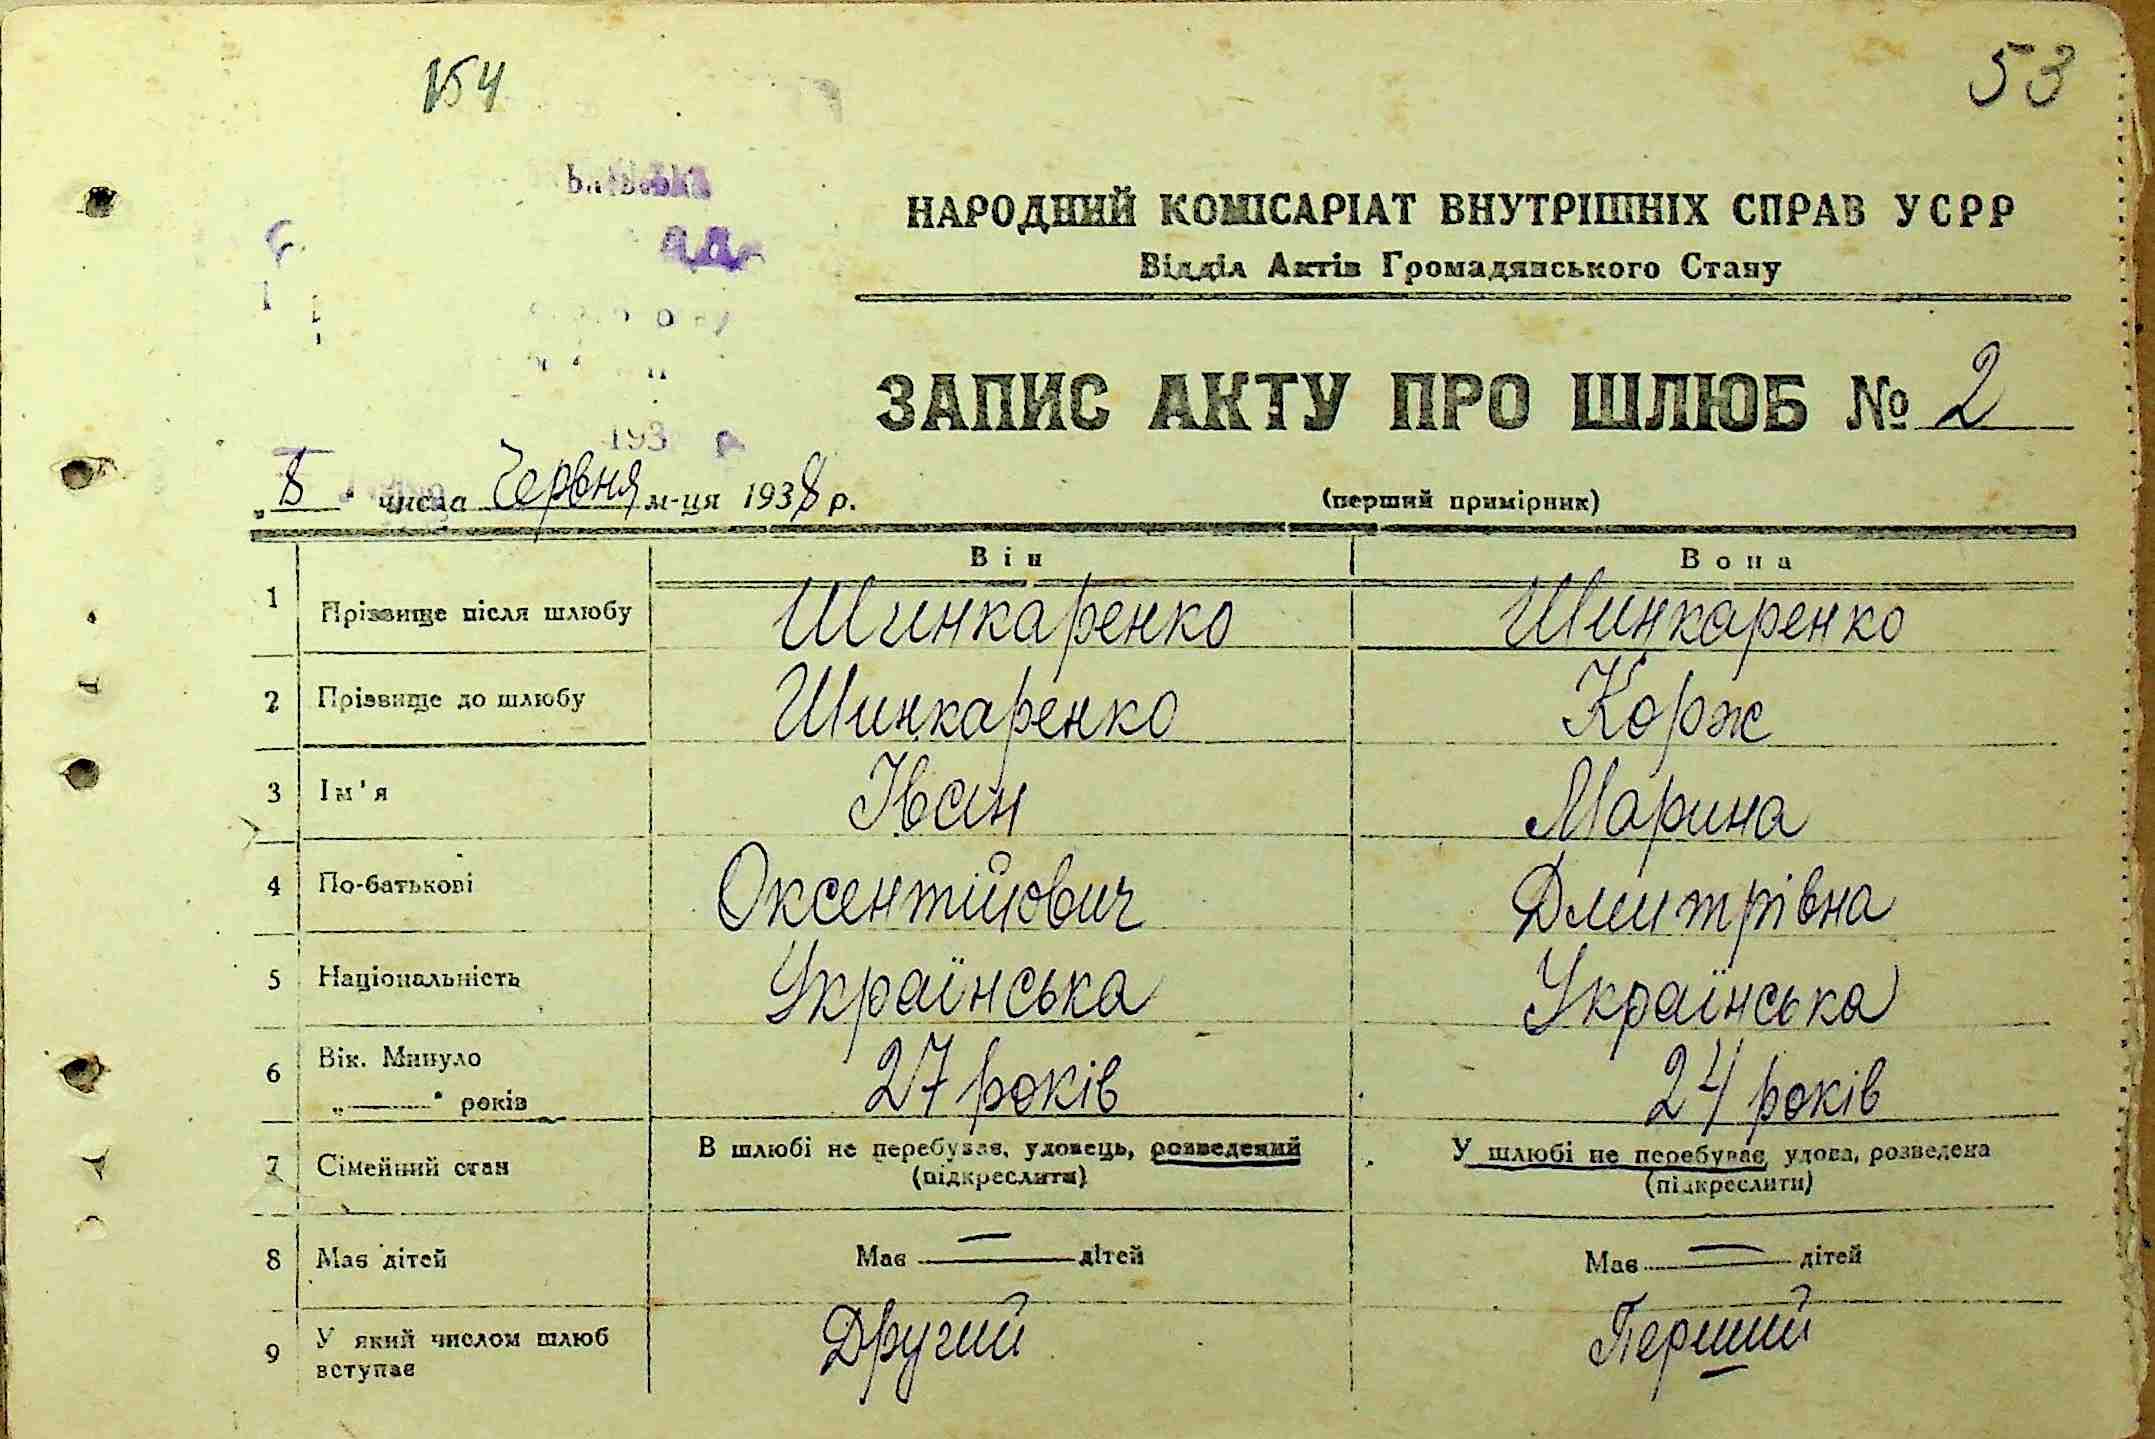 154
53
НАРОДНИЙ КОМІСАРІАТ ВНУТРІШНІХ СПРАВ УСРР
Відділ Актів Громадянського Стану
ЗАПИС АКТУ ПРО ШЛЮБ № 2
193
„8" числа Червня м-ця 1938 р.
(перший примірник)
Він Вона
1 Прізвище після шлюбу Шинкаренко Шинкаренко
2 Прізвище до шлюбу Шинкаренко Корж
3 Ім'я Іван Марина
4 По-батькові Оксентійович Дмитрівна
5 Національність Українська Українська
6 Вік. Минуло
„———" років 27 років 24 років
7 Сімейний стан В шлюбі не перебуває, удовець, розведений У шлюбі не перебуває, удова, розведена
(підкреслити) (підкреслити)
8 Має дітей Має — дітей Має — дітей
9 У який числом шлюб
вступає Другий Перший